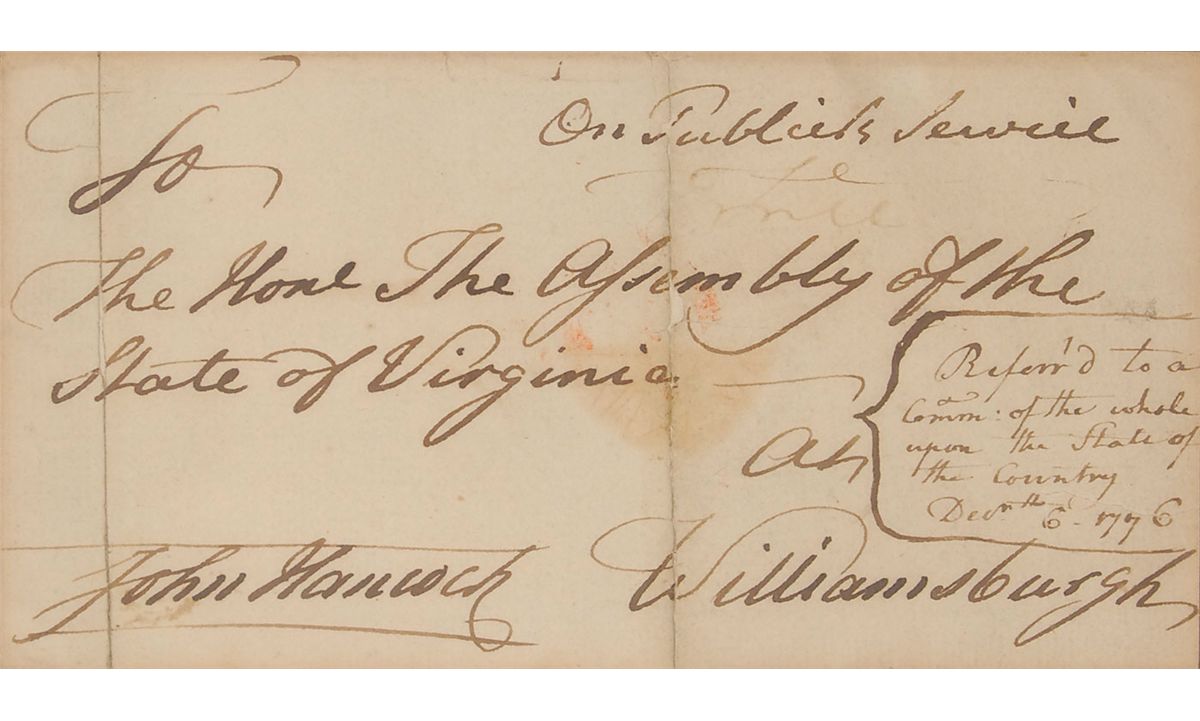 On Publick Service
To
The Honl. The Assembly of the
State of Virginia.
At
Williamsburgh
John Hancock
Referr'd to a
Comm: of the whole
upon the State of
the Country
6. 1776